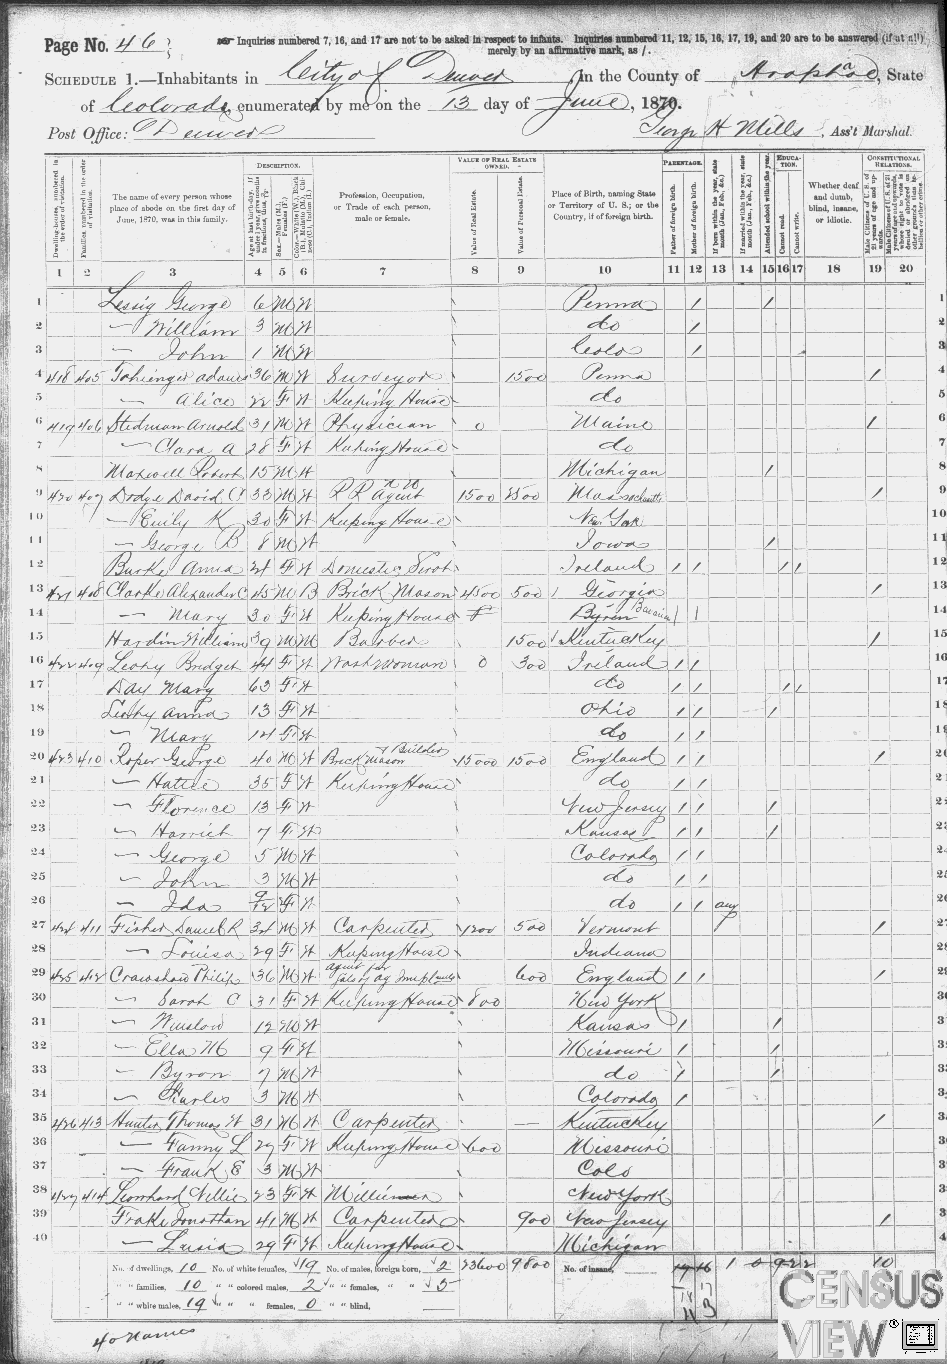 Page No. 46
☞ Inquiries numbered 7, 16, and 17 are not to be asked in respect to infants. Inquiries numbered 11, 12, 15, 16, 17, 19, and 20 are to be answered (if at all)
merely by an affirmative mark, as /.
SCHEDULE 1.—Inhabitants in City of Denver, in the County of Arapahoe, State
of Colorado, enumerated by me on the 13 day of June, 1870.
Post Office: Denver George H Mills, Ass't Marshal.
Dwelling-houses, numbered in the order of visitation.
Families, numbered in the order of visitation.
The name of every person whose place of abode on the first day of June, 1870, was in this family.
DESCRIPTION.
Profession, Occupation, or Trade of each person, male or female.
VALUE OF REAL ESTATE OWNED.
Value of Real Estate.
Value of Personal Estate.
Place of Birth, naming State or Territory of U. S.; or the Country, if of foreign birth.
PARENTAGE.
Father of foreign birth.
Mother of foreign birth.
If born within the year, state month (Jan., Feb., &c.)
If married within the year, state month (Jan., Feb., &c.)
Attended school within the year.
EDUCATION.
Cannot read.
Cannot write.
Whether deaf and dumb, blind, insane, or idiotic.
CONSTITUTIONAL RELATIONS.
1 2 3 4 5 6 7 8 9 10 11 12 13 14 15 16 17 18 19 20
1 Lessig George 6 M W Penna / / 1
2 — William 3 M W do / 2
3 — John 1 M W Colo / 3
4 418 405 36 M W Surveyor 1500 Penna / 4
5 — Alice 22 F W Keeping House do 5
6 419 406 Stedman Arnold 31 M W Physician 0 Maine / 6
7 — Clara A 28 F W Keeping House do 7
8 Maxwell Robert 15 M W Michigan / 8
9 420 407 Dodge David C 33 M W R R Agent 1500 2500 Massachusetts / 9
10 — Emily K 30 F W Keeping House New York 10
11 — George B 8 M W Iowa / 11
12 Burke Anna 21 F W Domestic Servt Ireland / / / / 12
13 421 408 Clarke Alexander C 45 M B Brick Mason 4500 500 Georgia / 13
14 — Mary 30 F W Keeping House Bavaria / / 14
15 Hardin William 39 M M Barber 1500 Kentucky / 15
16 422 409 Leahy Bridget 44 F W Wash Woman 0 300 Ireland / / 16
17 Day Mary 63 F W do / / / / 17
18 Leahy Anna 13 F W Ohio / / / 18
19 — Mary 14 F W do / / 19
20 423 410 Roper George 40 M W Brick Mason & Builder 15000 1500 England / / / 20
21 — Hattie 35 F W Keeping House do / / 21
22 — Florence 13 F W New Jersey / / / 22
23 — Harriet 7 F W Kansas / / / 23
24 — George 5 M W Colorado / /
25 — John 3 M W do / /
26 — Ida 9/12 F W do / / Aug
27 424 411 Fisher Daniel R 34 M W Carpenter 1200 500 Vermont /
28 — Louisa 29 F W Keeping House Indiana
29 425 412 Crawshaw Philip 36 M W Agent for Sale of Ag Implements 600 England / / /
30 — Sarah C 31 F W Keeping House 800 New York
31 — Winslow 12 M W Kansas / /
32 — Ella M 9 F W Missouri / /
33 — Byron 7 M W do / /
34 — Charles 3 M W Colorado /
35 426 413 Hunter Thomas W 31 M W Carpenter — Kentucky /
36 — Fanny L 29 F W Keeping House 600 Missouri
37 — Frank E 3 M W Colo
38 427 414 Leonhard Nellie 23 F W Milliner New York
39 Frake Jonathan 41 M W Carpenter 900 New Jersey /
40 — Lusia 29 F W Keeping House Michigan
No. of dwellings, 10 No. of white females, 19 No. of males, foreign born, 2 23600 9800 No. of insane, 1 0 9 2 2 10
" " families, 10 " " colored males, 2 " " females, " 5
" " white males, 19 " " " females, 0 " " blind,
40 names
CENSUS
VIEW®